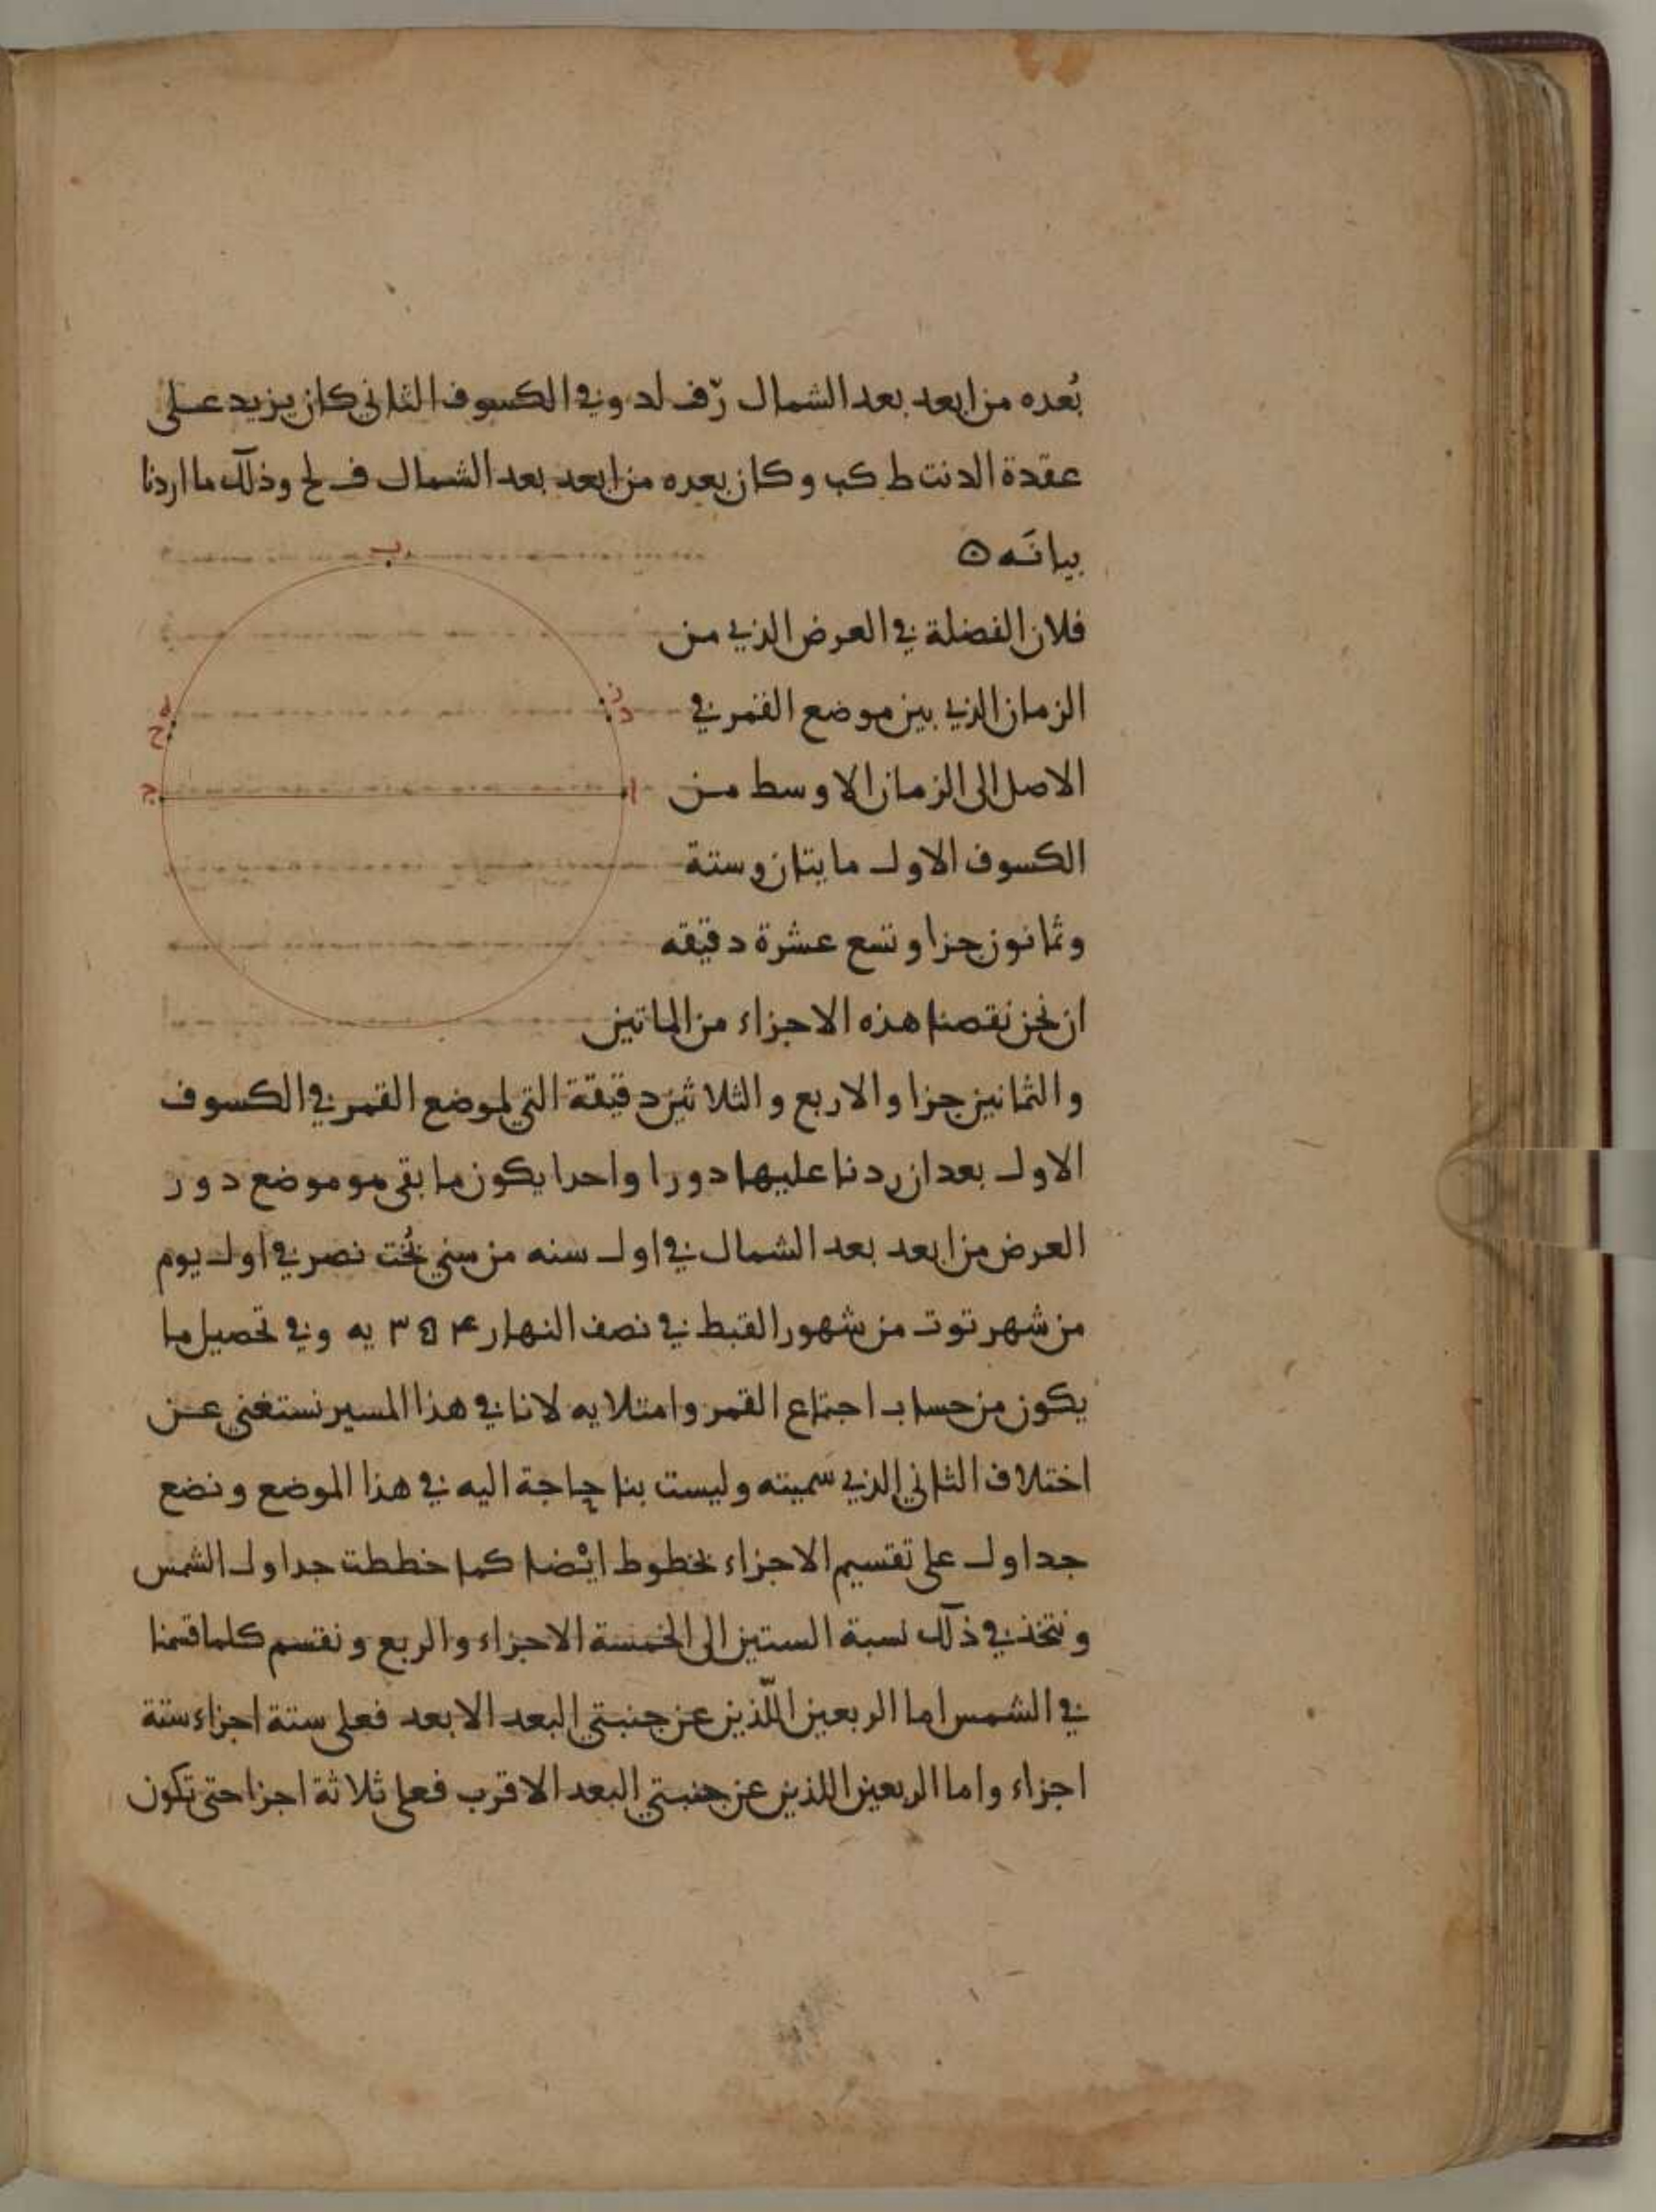 بُعده من ابعد بعد الشمال رّف لد وفي الكسوف الثاني كان يزيد على
عقدة الدنت ط كب وكان بعده من ابعد بعد الشمال ف لح وذلك ما اردنا
بيانه ه
ب
فلان الفضلة في العرض الذي من
الزمان الذي بين موضع القمر في
الاصل الى الزمان الاوسط من
الكسوف الاول مايتان وستة
وثمانون جزا وتسع عشرة دقيقه
ان نحن نقصنا هذه الاجزاء من الماتين
ز
د
ه
ح
ا
ج
والثمانين جزا والاربع والثلاثين دقيقة التي لموضع القمر في الكسوف
الاول بعد ان ردنا عليها دورا واحدا يكون ما بقي هو موضع دور
العرض من ابعد بعد الشمال في اول سنه من سني بُخت نصر في اول يوم
من شهر توت من شهور القبط في نصف النهار ۳۵۴ يه وفي تحصيل ما
يكون من حساب اجتماع القمر وامتلايه لانا في هذا المسير نستغني عن
اختلاف الثاني الذي سميته وليست بنا حاجة اليه في هذا الموضع ونضع
جداول على تقسيم الاجزاء بخطوط ايضا كما خططت جداول الشمس
ونتخذ في ذلك نسبة الستين الى الخمسة الاجزاء والربع ونقسم كلما قسمنا
في الشمس اما الربعين اللّذين عن جنبتي البعد الابعد فعلى ستة اجزاء ستة
اجزاء واما الربعين اللذين عن جنبتي البعد الاقرب فعلى ثلاثة اجزا حتى تكون